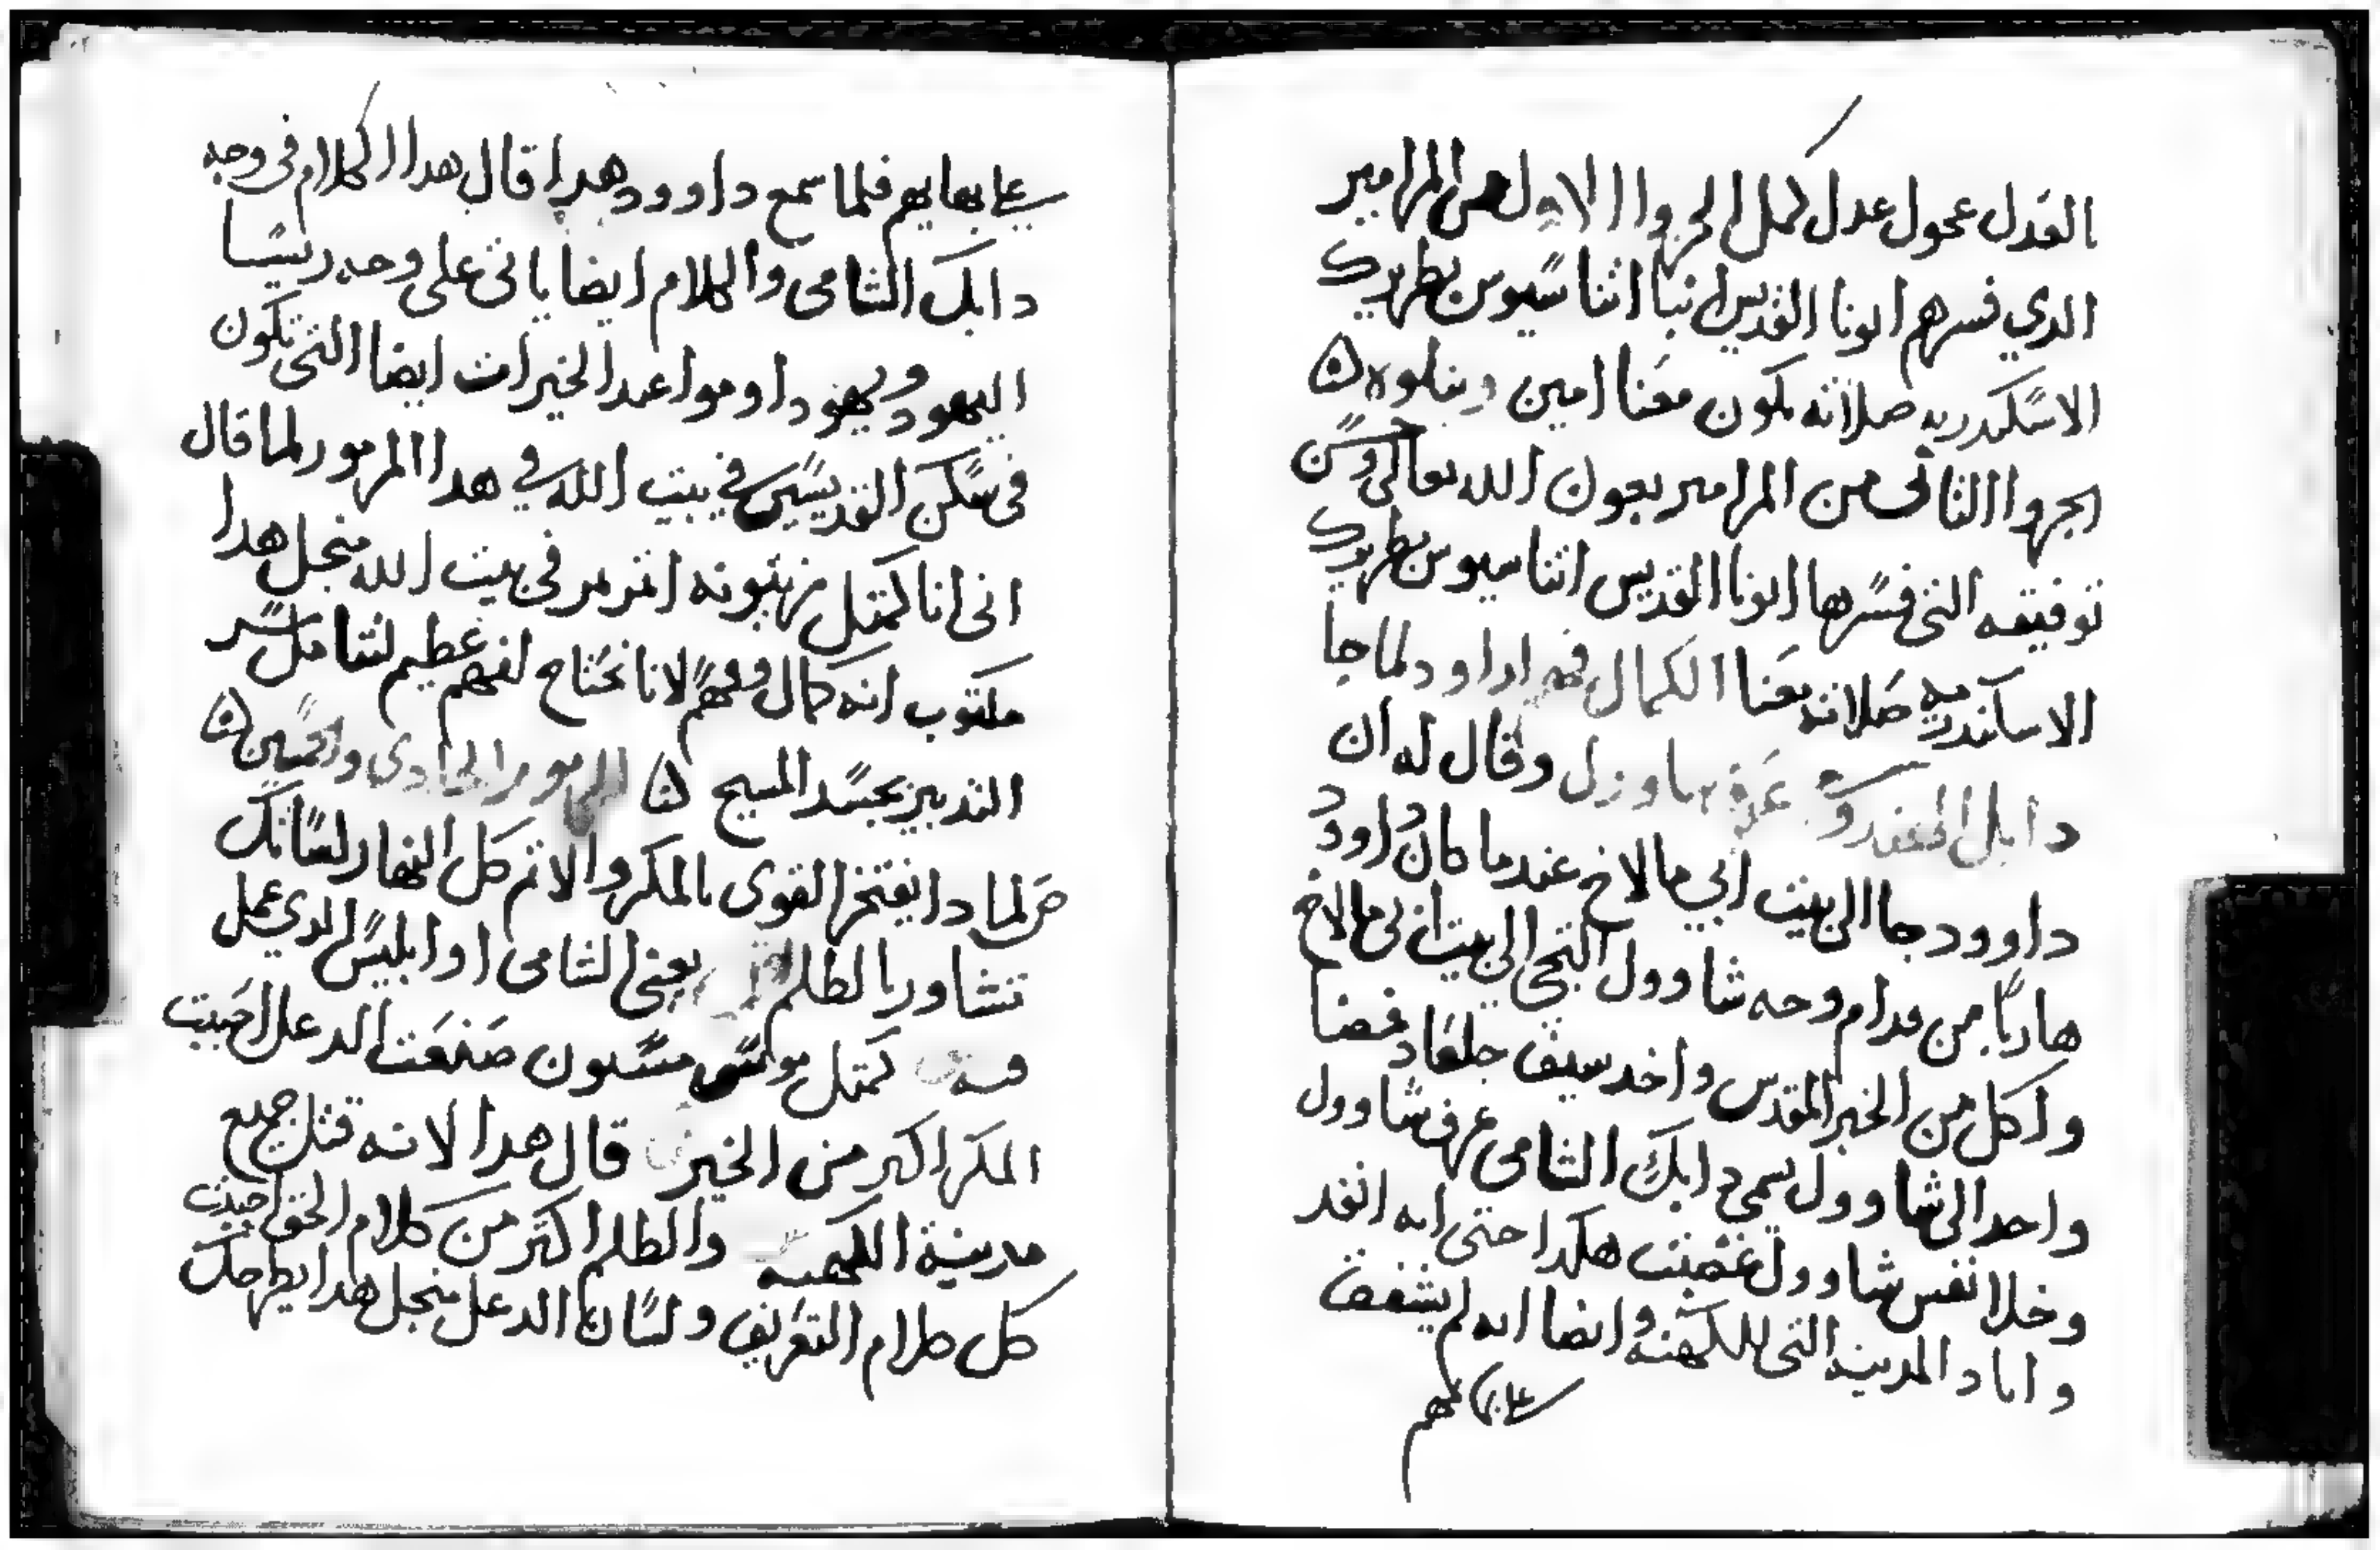 العدل عحول عدل كمل الجزوا الاول من المزامير
الدي فسرهم ابونا القديس انبا اثناسيوس بطريرك
الاسكندريه صلاته تكون معنا امين ويتلوه
الجزوا الثاني من المزامير بعون الله تعالى وحسن
توفيقه التي فسرها ابونا القديس اثناسيوس بطريرك
الاسكندريه صلاته معنا الكمال فهم لداوود لما جا
دابك وقال له ان
داوود جا الى بيت ابي مالاخ عندما كان داوود
هاربا من قدام وجه شاوول التجى الى بيت ابي مالاخ
واكل من الخبز المقدس واخد سيف جلعاد فمضا
واحد الى شاوول سمي دابك الشامي عرف شاوول
وخلا نفس شاوول غضبت هكدا حتى انه انفد
واباد المدينه التي للكهنه وايضا انه لم يشفق
على بهايهم
على بهايهم فلما سمع داوود هدا قال هدا الكلام في وجه
دابك الشامي والكلام ايضا ياتي على وجه ريسا
اليهود ويهودا ومواعيد الخيرات ايضا التي تكون
في سكن القديسين في بيت الله في هدا المزمور لما قال
اني انا كمتل زيتونه اتمر في بيت الله منجل هدا
مكتوب انه كمال وفهم لانا نحتاج لفهم عظيم لنتامل سر
التدبير بجسد المسيح المزمور الحادي والخمسين
ص لمادا يفتخر القوي بالمكر والاتم كل النهار لسانك
تشاور بالظلم يعني الشامي او ابليس الدي عمل
فيه كمتل موسى مسنون صنعت الدغل احببت
المكر اكتر من الخير قال هدا لانه قتل جميع
مدينة الكهنه والظلم اكتر من كلام الحق احببت
كل كلام التغريق ولسان الدغل منجل هدا يطرحك